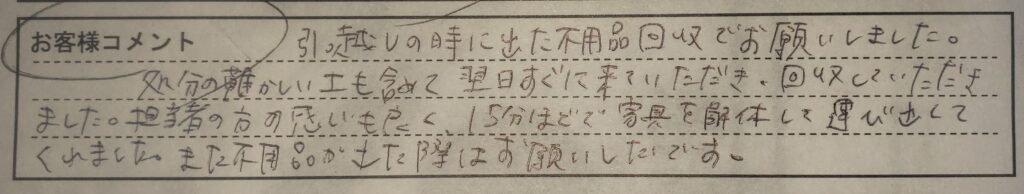 お客様コメント 引っ越しの時に出た不用品回収でお願いしました。
処分の難かしい土も含めて翌日すぐに来ていただき、回収していただき
ました。担当者の方の感じも良く、15分ほどで家具を解体して運び出して
くれました。また不用品が出た際はお願いしたいです。